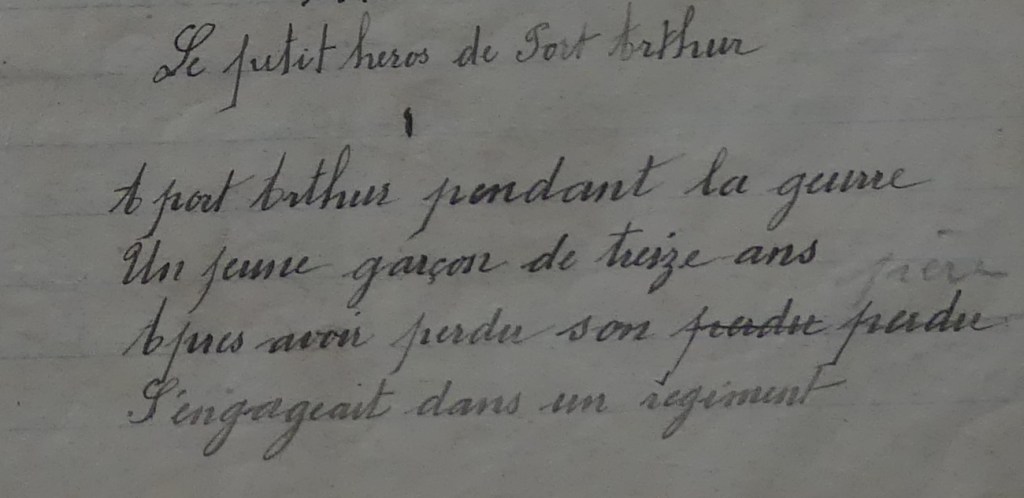 Le petit heros de Port Arthur
1
A port Arthur pendant la geurre
Un jeune garçon de treize ans
père
Apres avoir perdu son perdu perdu
S'engageait dans un regiment